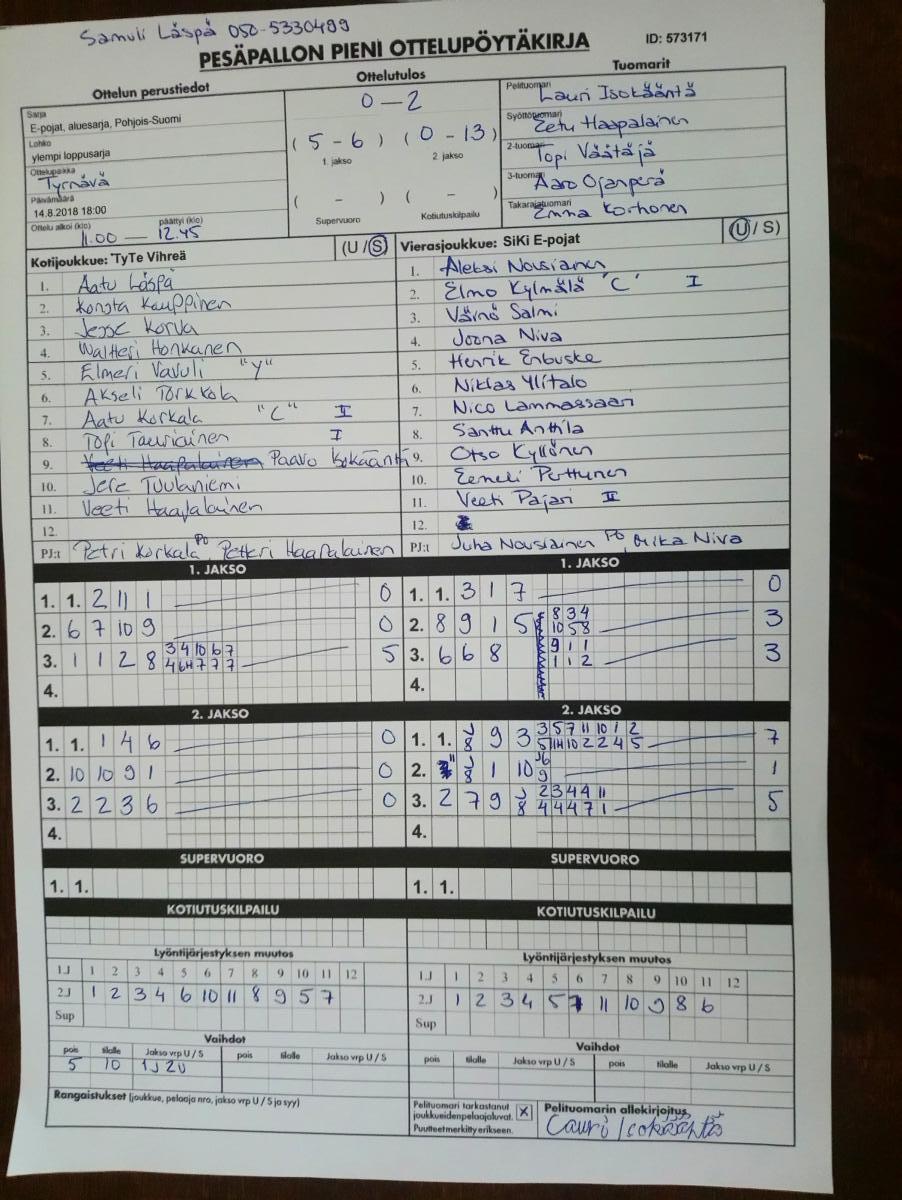 Samuli Läspä 050-5330499
PESÄPALLON PIENI OTTELUPÖYTÄKIRJA ID: 573171
Ottelun perustiedot Ottelutulos Tuomarit
Sarja
E-pojat, aluesarja, Pohjois-Suomi
Lohko
ylempi loppusarja
Ottelupaikka
Tyrnävä
Päivämäärä
14.8.2018 18:00
Ottelu alkoi (klo) päättyi (klo)
11.00 — 12.45
0 - 2
( 5 - 6 ) ( 0 - 13 )
1. jakso 2. jakso
( - ) ( - )
Supervuoro Kotiutuskilpailu
Pelituomari
Lauri Isokääntä
Syöttötuomari
Eetu Haapalainen
2-tuomari
Topi Väätäjä
3-tuomari
Aaro Ojanperä
Takarajatuomari
Emma Korhonen
Kotijoukkue: TyTe Vihreä (U / S)
1. Aatu Läspä
2. Konsta Kauppinen
3. Jesse Korva
4. Waltteri Honkanen
5. Elmeri Vavuli "Y"
6. Akseli Törkkola
7. Aatu Korkala "C" II
8. Topi Tauriainen I
9. Veeti Haapalainen Paavo Isokääntä
10. Jere Tuulaniemi
11. Veeti Haapalainen
12.
PJ:t Petri Korkala PO Petteri Haapalainen
Vierasjoukkue: SiKi E-pojat (U / S)
1. Aleksi Nousiainen
2. Elmo Kylmälä "C" I
3. Väinö Salmi
4. Joona Niva
5. Henrik Enbuske
6. Niklas Ylitalo
7. Nico Lammassaari
8. Santtu Anttila
9. Otso Kyllönen
10. Eemeli Perttunen
11. Veeti Pajari II
12.
PJ:t Juha Nousiainen PO, Mika Niva
1. JAKSO
1. 1. 2 11 1 0
2. 6 7 10 9 0
3. 1 1 2 8 3 4 10 6 7 5
4 6 11 7 7 7
4.
1. JAKSO
1. 1. 3 1 7 0
2. 8 9 1 5 8 3 4 3
10 5 8
3. 6 6 8 9 1 1 3
1 1 2
4.
2. JAKSO
1. 1. 1 4 6 0
2. 10 10 9 1 0
3. 2 2 3 6 0
4.
2. JAKSO
1. 1. J 9 3 3 5 7 11 10 1 2 7
8 5 11 10 2 2 4 5
2. J 1 10 J6 1
8 9
3. 2 7 9 J 2 3 4 4 11 5
8 4 4 4 7 1
4.
SUPERVUORO
1. 1.
SUPERVUORO
1. 1.
KOTIUTUSKILPAILU
KOTIUTUSKILPAILU
Lyöntijärjestyksen muutos
1.J 1 2 3 4 5 6 7 8 9 10 11 12
2.J 1 2 3 4 6 10 11 8 9 5 7
Sup
Lyöntijärjestyksen muutos
1.J 1 2 3 4 5 6 7 8 9 10 11 12
2.J 1 2 3 4 5 7 11 10 9 8 6
Sup
Vaihdot
pois tilalle Jakso vrp U / S pois tilalle Jakso vrp U / S
5 10 1J 2U
Vaihdot
pois tilalle Jakso vrp U / S pois tilalle Jakso vrp U / S
Rangaistukset (joukkue, pelaaja nro, jakso vrp U / S ja syy)
Pelituomari tarkastanut
joukkueidenpelaajaluvat. X
Puutteetmerkittyerikseen.
Pelituomarin allekirjoitus
Lauri Isokääntä